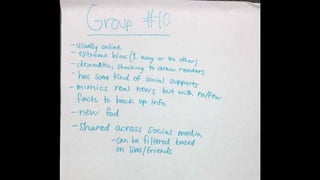 Group #10
- usually online
- extreme bias (1 way or the other)
- dramatic, shocking to draw readers
- has some kind of social support
- mimics real news but with no/few
facts to back up info
- new fad
- shared across social media
- can be filtered based
on likes/friends